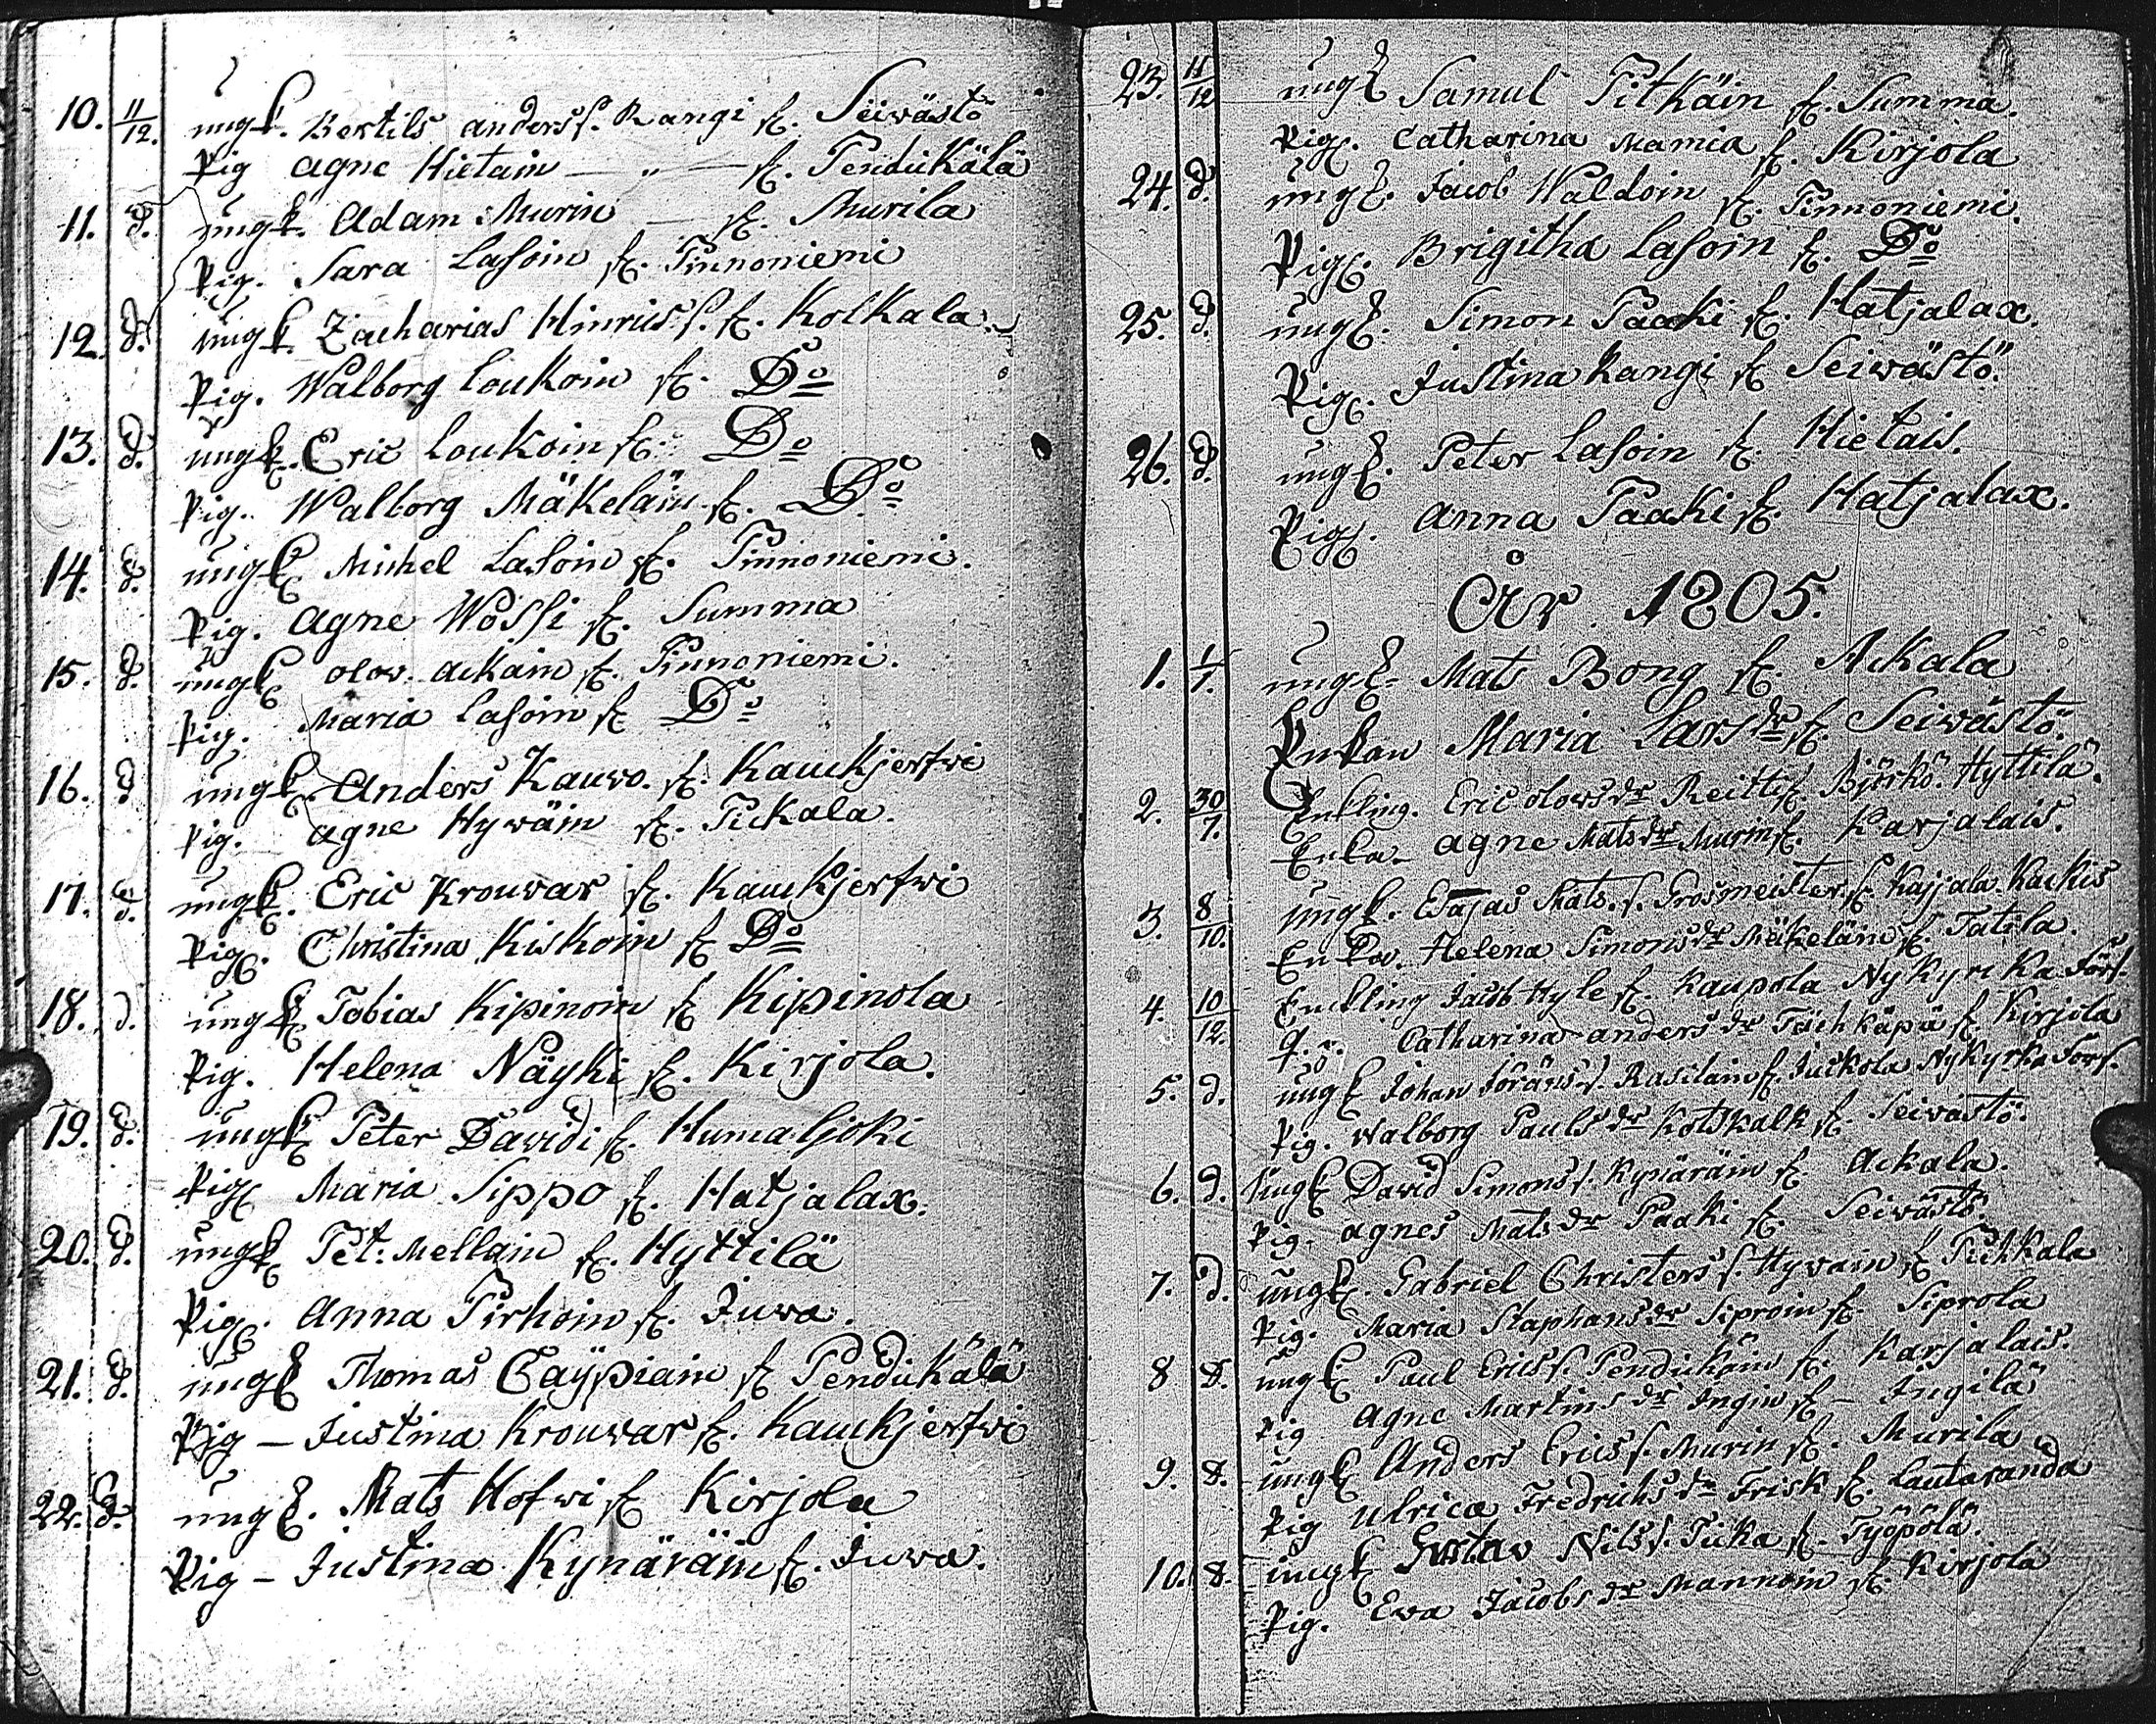 10. 11/12. ungk. Bertils anders s. Rangi fr. Seivästö
Pig agne Hietain — „ — fr. Pendikälä
11. d. ungk. Adam Murin — fr. Murila
Pig. Sara Lasoin fr. Pinnoniemi
12. d. ungk. Zacharias Hinrics s. fr. Kolkala
Pig. Walborg Loukoin fr. Do
13. d. ungk. Eric Loukoin fr. Do
Pig. Walborg Mäkeläin fr. Do
14. d. ungk Michel Lasoin fr. Pinnoniemi.
Pig. Agne Wossi fr. Summa
15. d. ungk olov. Ackain fr. Pinnoniemi.
Pig. Maria Lasoin fr Do
16. d ungk. Anders Kauvo. fr. Kaukjerfwi
Pig. agne Hywäin fr. Pickala.
17. d. ungk. Eric Krouvar fr. Kaukjerfwi
Pig. Christina Kiskoin fr Do
18. d. ungk Tobias Kipinoin fr Kipinola
Pig. Helena Näyki fr. Kirjola.
19. d. ungk Peter Davidi fr. Humaljoki
Pig Maria Sippo fr. Hatjalax.
20. d. ungk Pet: Mellain fr. Hyttilä
Pig. Anna Pirhoin fr. Juva.
21. d. ungk Thomas fr Pendikälä
Pig — Justina Krouvar fr. Kaukjerfwi
22. d. ungk. Mats Hofwi fr Kirjola
Pig — Justina Kynäräin fr. Juva.
23. 11/12 ungk Samul Pitkäin fr. Summa.
Pig. Catharina Mamia fr. Kirjola
24. d. ungk. Jacob Waldoin fr. Pinnoniemi.
Pig. Brigitha Lasoin fr. Do
25. d. ungk. Simon Paaki fr. Hatjalax.
Pig. Justina Rangi fr Seivästö.
26. d. ungk. Peter Lasoin fr. Hietais.
Pig. Anna Paaki fr. Hatjalax.
År 1805.
1. 1/1. ungk. Mats Bong fr. Ackala
Enkan Maria Larsdr fr. Seivästö.
2. 30/7. Enkling. Eric olovs Reitti fr. Björkö. Hyttilä.
Enka. agne Matsdr Murin fr. Karjalais.
3. 8/10. ungk. Esajas Mats. s. Grosmeister fr. Kajjala
Enka. Helena Simonsdr Mäkeläin fr. Tatila.
4. 10/12. Enckling Jacob Hyle fr. Kaupola Nykyrka Förs.
q. p. Catharina andersdr fr. Kirjola
5. d. ungk Johan Jörans s. Rasilain fr. Juckola Nykyrka Förs.
Pig. Walborg Paulsdr Kotskalk fr. Seivästö.
6. d. ungk David Simons s. Kynäräin fr Ackala.
Pig. agnes Matsdr Paaki fr. Seivästö.
7. d. ungk. Gabriel Christers s. Hyväin fr Pichkala
Pig. Maria Staphansdr Siproin fr. Siprola
8 d. ungk Paul Erics s. Pendikäin fr. Karjalais.
Pig agne Martinsdr Ingin fr — Ingilä
9. d. ungk Anders Erics s. Murin fr. Murila
Pig Ulrica Fredrichsdr Frisk fr. Lautaranda
10. d. ungk Gustav Nils s. Ticka fr. Työpölä.
Pig. Eva Jacobsdr Mannoin fr. Kirjola